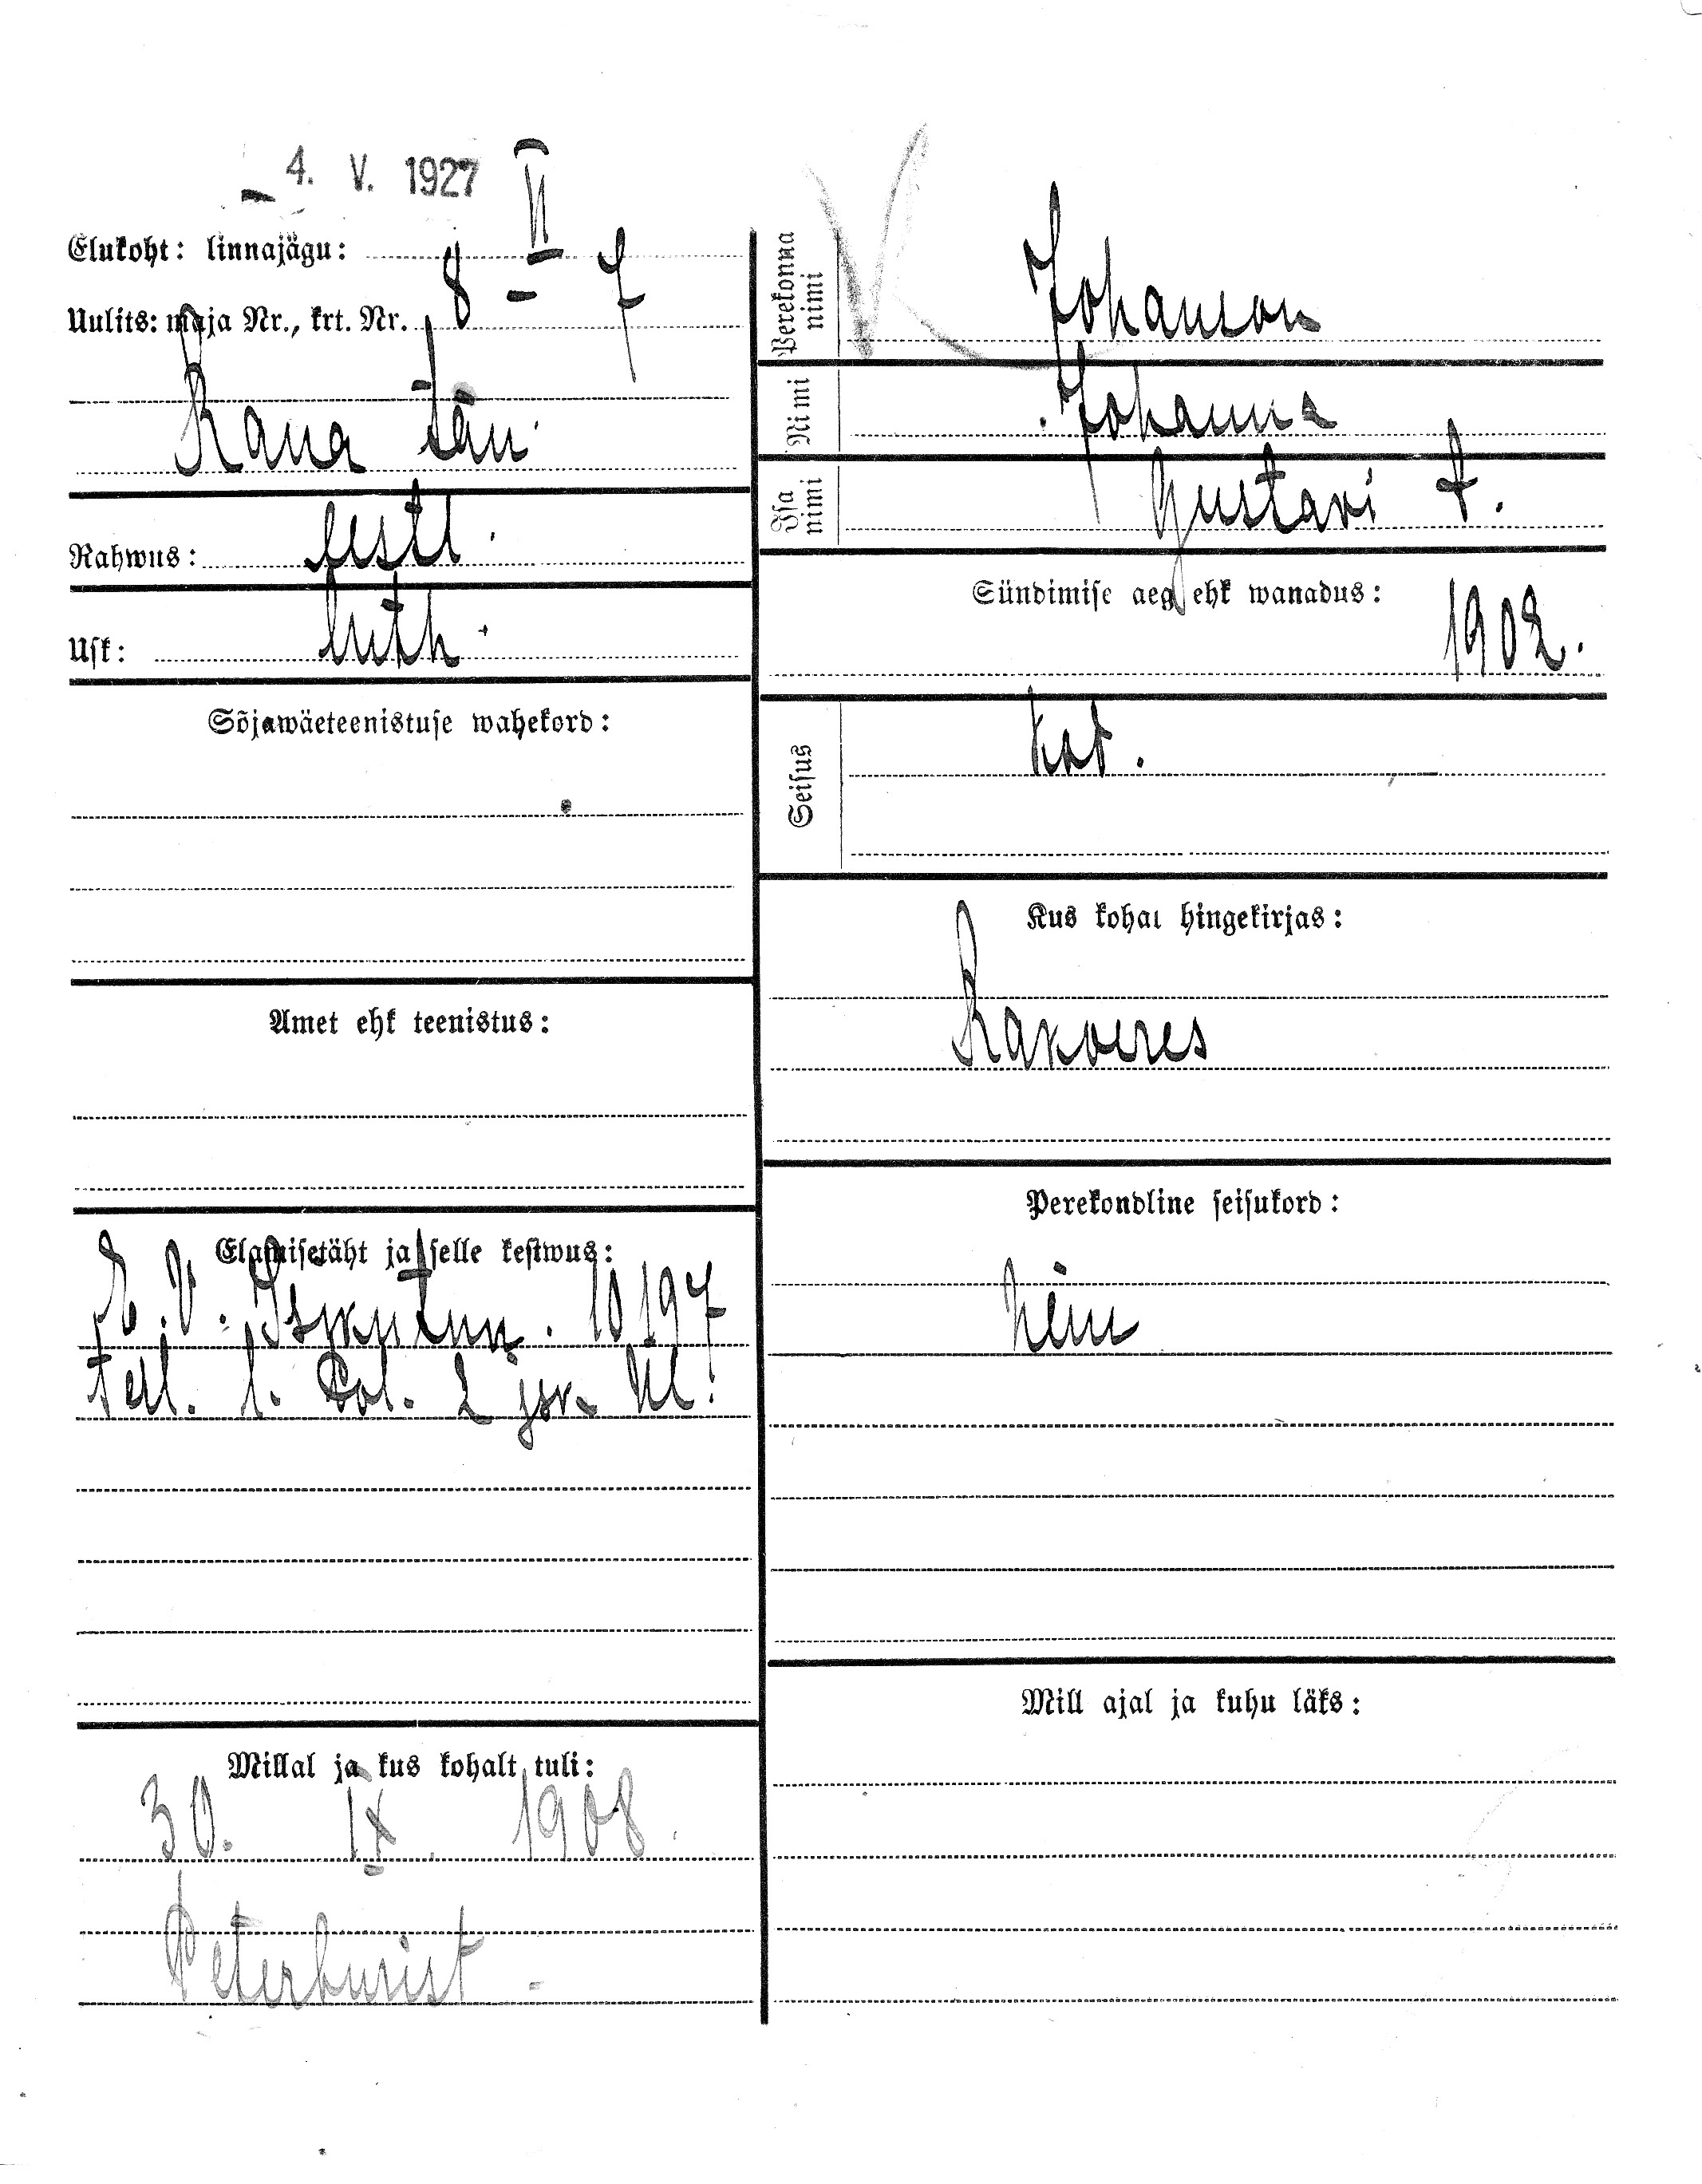 4. V. 1927
Elukoht: linnajägu: II
Uulits: maja Nr., krt. Nr. 8 – 7
Rana tän.
Rahwus: eesti.
Usk: luth.
Sõjawäeteenistuse wahekord:
Amet ehk teenistus:
Elamisetäht ja selle kestwus:
E. V. Isikutun. 10197
tall. l. pol. 2 jsk.
Millal ja kus kohalt tuli:
30. IX. 1908.
Peterburist
Perekonna nimi
Johanson
Nimi
Johanna
Isa nimi
Gustavi t.
Sündimise aeg ehk wanadus:
1902.
Seisus
kod.
Kus kohal hingekirjas:
Rakveres
Perekondline seisukord:
Neiu
Mill ajal ja kuhu läks: